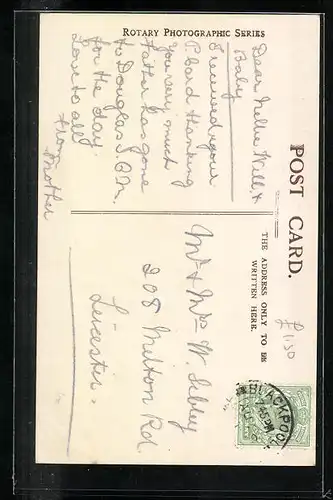 ROTARY PHOTOGRAPHIC SERIES
POST CARD.
THE ADDRESS ONLY TO BE
WRITTEN HERE.
Dear Nellie Will &
Baby
I received your
P. Card thanking
you very much
father has gone
to Douglas I.O.M.
for the day.
Love to all
from
Mother
Mr & Mrs W. Sibley
208 Milton Rd
Leicester.
£1.50
BLACKPOOL